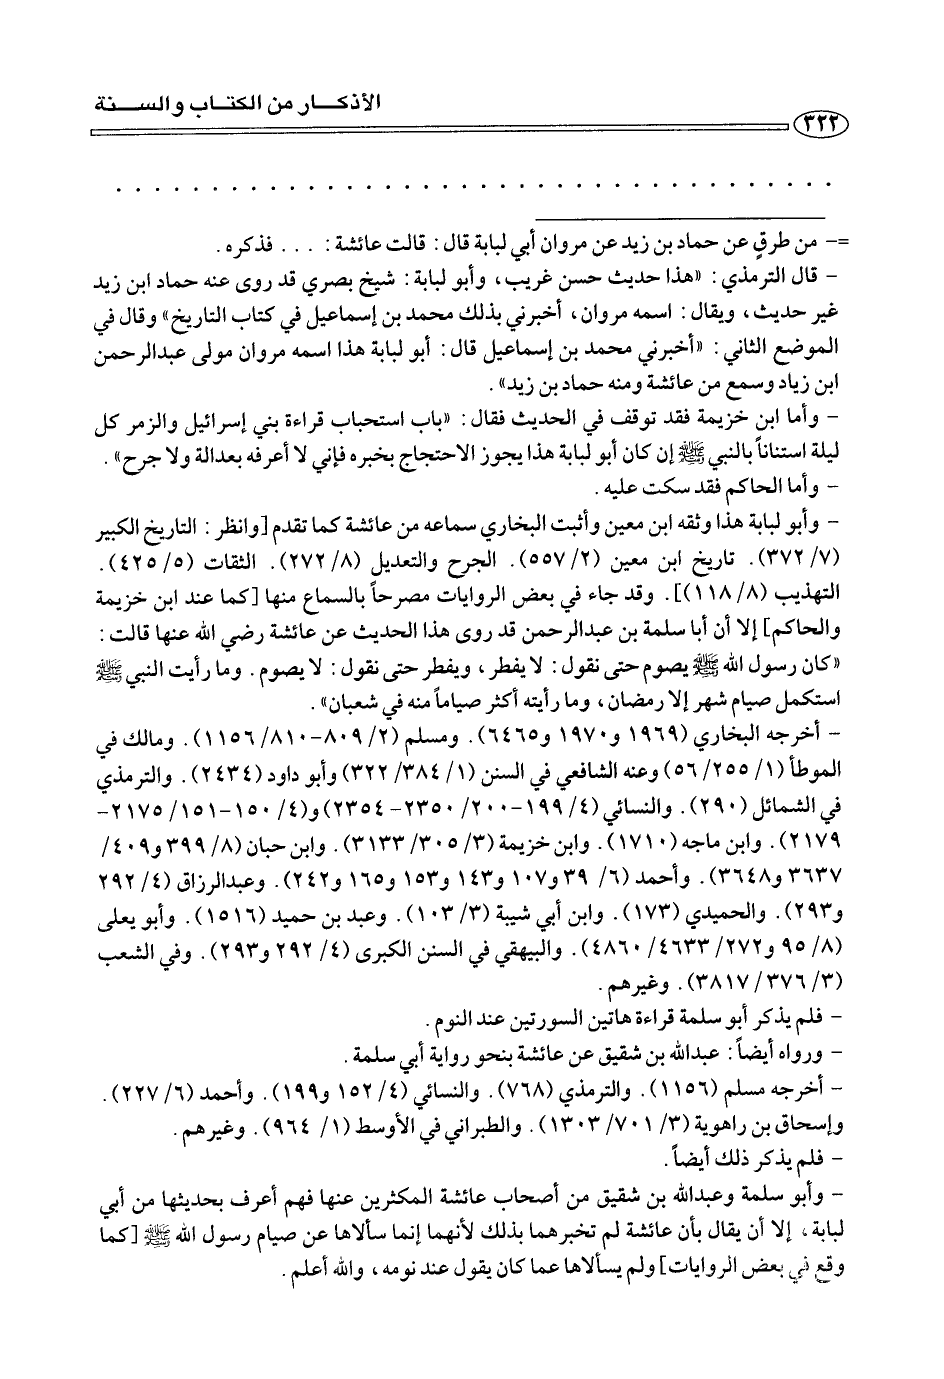 الأذكــار من الكتـاب والســنة
٣٢٢
=- من طرقٍ عن حماد بن زيد عن مروان أبي لبابة قال: قالت عائشة: ... فذكره.
- قال الترمذي: «هذا حديث حسن غريب، وأبو لبابة: شيخ بصري قد روى عنه حماد ابن زيد
غير حديث، ويقال: اسمه مروان، أخبرني بذلك محمد بن إسماعيل في كتاب التاريخ» وقال في
الموضع الثاني: «أخبرني محمد بن إسماعيل قال: أبو لبابة هذا اسمه مروان مولى عبدالرحمن
ابن زياد وسمع من عائشة ومنه حماد بن زيد».
- وأما ابن خزيمة فقد توقف في الحديث فقال: «باب استحباب قراءة بني إسرائيل والزمر كل
ليلة استناناً بالنبي ﷺ إن كان أبو لبابة هذا يجوز الاحتجاج بخبره فإني لا أعرفه بعدالة ولا جرح».
- وأما الحاكم فقد سكت عليه.
- وأبو لبابة هذا وثقه ابن معين وأثبت البخاري سماعه من عائشة كما تقدم [وانظر: التاريخ الكبير
(٧/ ٣٧٢). تاريخ ابن معين (٢/ ٥٥٧). الجرح والتعديل (٨/ ٢٧٢). الثقات (٥/ ٤٢٥).
التهذيب (٨/ ١١٨)]. وقد جاء في بعض الروايات مصرحاً بالسماع منها [كما عند ابن خزيمة
والحاكم] إلا أن أبا سلمة بن عبدالرحمن قد روى هذا الحديث عن عائشة رضي الله عنها قالت:
«كان رسول الله ﷺ يصوم حتى نقول: لا يفطر، ويفطر حتى نقول: لا يصوم. وما رأيت النبي ﷺ
استكمل صيام شهر إلا رمضان، وما رأيته أكثر صياماً منه في شعبان».
- أخرجه البخاري (١٩٦٩ و١٩٧٠ و٦٤٦٥). ومسلم (٢/ ٨٠٩-٨١٠/ ١١٥٦). ومالك في
الموطأ (١/ ٢٥٥/ ٥٦) وعنه الشافعي في السنن (١/ ٣٨٤/ ٣٢٢) وأبو داود (٢٤٣٤). والترمذي
في الشمائل (٢٩٠). والنسائي (٤/ ١٩٩-٢٠٠/ ٢٣٥٠- ٢٣٥٤) و(٤/ ١٥٠-١٥١/ ٢١٧٥-
٢١٧٩). وابن ماجه (١٧١٠). وابن خزيمة (٣/ ٣٠٥/ ٣١٣٣). وابن حبان (٨/ ٣٩٩ و٤٠٩/
٣٦٣٧ و٣٦٤٨). وأحمد (٦/ ٣٩ و١٠٧ و١٤٣ و١٥٣ و١٦٥ و٢٤٢). وعبدالرزاق (٤/ ٢٩٢
و٢٩٣). والحميدي (١٧٣). وابن أبي شيبة (٣/ ١٠٣). وعبد بن حميد (١٥١٦). وأبو يعلى
(٨/ ٩٥ و٢٧٢/ ٤٦٣٣/ ٤٨٦٠). والبيهقي في السنن الكبرى (٤/ ٢٩٢ و٢٩٣). وفي الشعب
(٣/ ٣٧٦/ ٣٨١٧). وغيرهم.
- فلم يذكر أبو سلمة قراءة هاتين السورتين عند النوم.
- ورواه أيضاً: عبدالله بن شقيق عن عائشة بنحو رواية أبي سلمة.
- أخرجه مسلم (١١٥٦). والترمذي (٧٦٨). والنسائي (٤/ ١٥٢ و١٩٩). وأحمد (٦/ ٢٢٧).
وإسحاق بن راهوية (٣/ ٧٠١/ ١٣٠٣). والطبراني في الأوسط (١/ ٩٦٤). وغيرهم.
- فلم يذكر ذلك أيضاً.
- وأبو سلمة وعبدالله بن شقيق من أصحاب عائشة المكثرين عنها فهم أعرف بحديثها من أبي
لبابة، إلا أن يقال بأن عائشة لم تخبرهما بذلك لأنهما إنما سألاها عن صيام رسول الله ﷺ [كما
وقع في بعض الروايات] ولم يسألاها عما كان يقول عند نومه، والله أعلم.